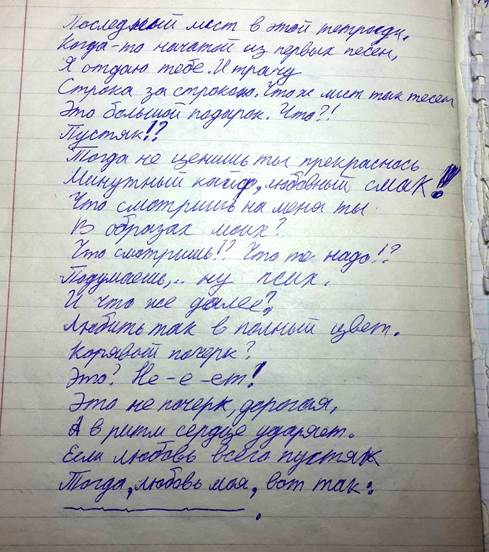 Последний лист в этой тетради,
Когда-то начатой из первых песен,
Я отдаю тебе. И трачу
Строка за строкою. Что ж лист так тесен
Это большой подарок. Что?!
Пустяк!?
Тогда не ценишь ты прекрасность
Минутный кайф, любовный смак!!
Что смотришь на меня ты
В образах моих?
Что смотришь!? Что те надо!?
Подумаешь,.. ну псих.
И что же далее?
Любить так в полный цвет.
Корявый почерк?
Это? Не-е-ет!
Это не почерк, дорогая,
А в ритм сердце ударяет.
Если любовь всего пустяк
Тогда, любовь моя, вот так: